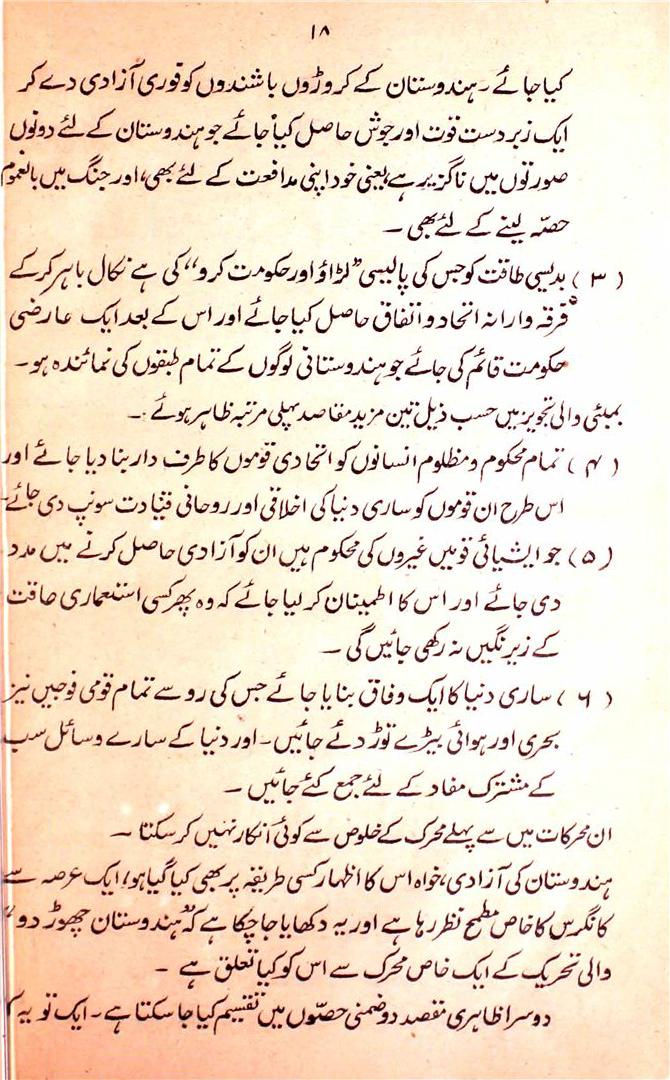 ۱۸
کیا جائے ۔ ہندوستان کے کروڑوں باشندوں کو فوری آزادی دے کر
ایک زبردست قوت اور جوش حاصل کیا جائے جو ہندوستان کے لئے دونوں
صورتوں میں ناگزیر ہے، یعنی خود اپنی مدافعت کے لئے بھی، اور جنگ میں بالعموم
حصّہ لینے کے لئے بھی ۔
( ۳ ) بدیسی طاقت کو جس کی پالیسی ”لڑاؤ اور حکومت کرو“ کی ہے نکال باہر کرکے
فرقہ وارانہ اتحاد و اتفاق حاصل کیا جائے اور اس کے بعد ایک عارضی
حکومت قائم کی جائے جو ہندوستانی لوگوں کے تمام طبقوں کی نمائندہ ہو ۔
بمبئی والی تجویز میں حسب ذیل تین مزید مقاصد پہلی مرتبہ ظاہر ہوئے :۔
( ۴ ) تمام محکوم و مظلوم انسانوں کو اتحادی قوموں کا طرف دار بنا دیا جائے اور
اس طرح ان قوموں کو ساری دنیا کی اخلاقی اور روحانی قیادت سونپ دی جائے ۔
( ۵ ) جو ایشیائی قومیں غیروں کی محکوم ہیں ان کو آزادی حاصل کرنے میں مدد
دی جائے اور اس کا اطمینان کر لیا جائے کہ وہ پھر کسی استعماری طاقت
کے زیر نگیں نہ رکھی جائیں گی ۔
( ۶ ) ساری دنیا کا ایک وفاق بنایا جائے جس کی رو سے تمام قومی فوجیں نیز
بحری اور ہوائی بیڑے توڑ دئے جائیں ۔ اور دنیا کے سارے وسائل سب
کے مشترک مفاد کے لئے جمع کئے جائیں ۔
ان محرکات میں سے پہلے محرک کے خلوص سے کوئی انکار نہیں کر سکتا ۔
ہندوستان کی آزادی، خواہ اس کا اظہار کسی طریقہ پر بھی کیا گیا ہو، ایک عرصہ سے
کانگرس کا خاص مطمح نظر رہا ہے اور یہ دکھایا جا چکا ہے کہ ”ہندوستان چھوڑ دو“
والی تحریک کے ایک خاص محرک سے اس کو کیا تعلق ہے ۔
دوسرا ظاہری مقصد دو ضمنی حصّوں میں تقسیم کیا جا سکتا ہے ۔ ایک تو یہ